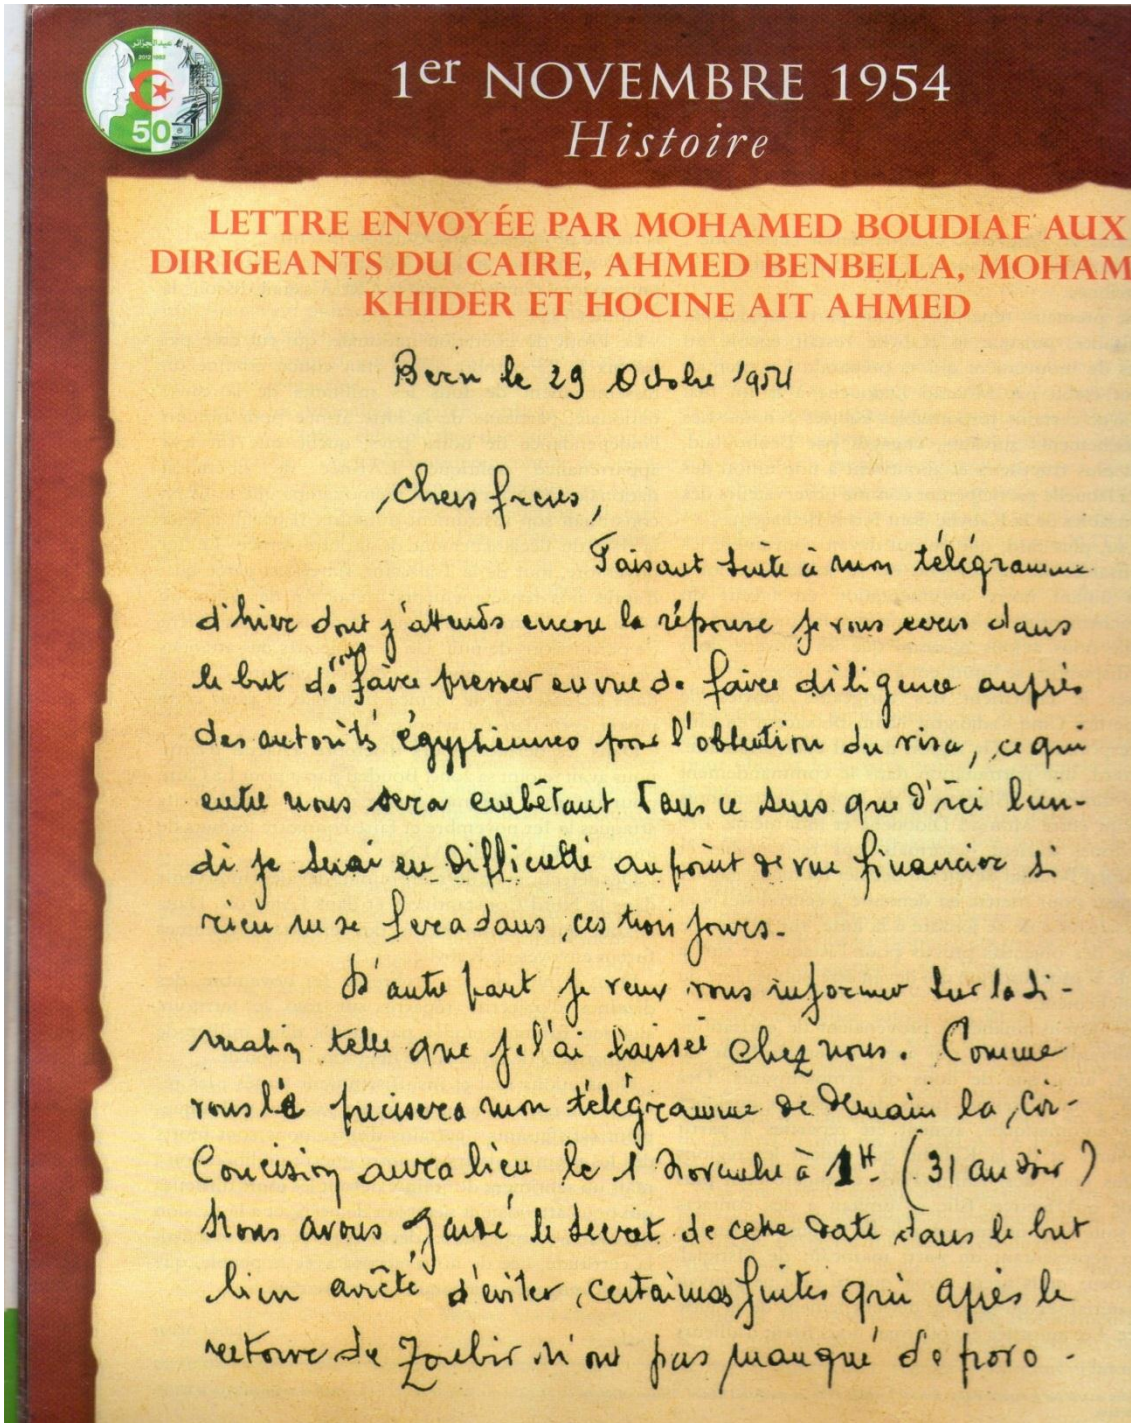 عيد الجزائر
2012 1962
50
1er NOVEMBRE 1954
Histoire
LETTRE ENVOYÉE PAR MOHAMED BOUDIAF AUX
DIRIGEANTS DU CAIRE, AHMED BENBELLA, MOHAM
KHIDER ET HOCINE AIT AHMED
Bern le 29 Octobre 1954
Chers freres,
Faisant suite à mon télégramme
d'hier dont j'attends encore la réponse je vous ecris dans
le but de faire presser en vue de faire diligence auprès
des autorités égyptiennes pour l'obtention du visa, ce qui
entre nous sera embêtant dans ce sens que d'ici lun-
di je serai en difficulté au point de vue financier si
rien ne se fera dans ces trois jours.
D'autre part je veux vous informer sur la si-
tuation telle que je l'ai laissée chez nous. Comme
vous le precisera mon télégramme de demain la cir-
concision aura lieu le 1 Novembre à 1H. (31 au soir)
Nous avons gardé le secret de cette date dans le but
bien arrêté d'éviter certaines fuites qui après le
retour de Zoubir n'ont pas manqué de provo-